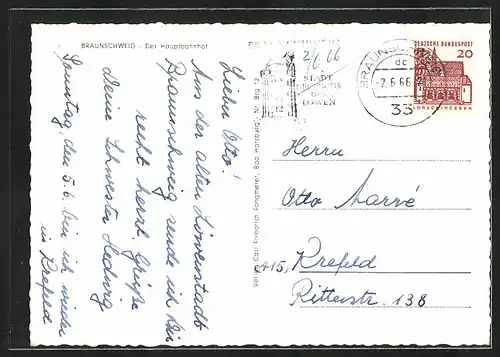 BRAUNSCHWEIG - Der Hauptbahnhof
Lieber Otto!
Aus der alten Löwenstadt
Braunschweig sende ich Dir
recht herzl. Grüße
Deine Schwester Hedwig
Sonntag, den 5.6. bin ich wieder
in Krefeld
2/6 66
BRAUNSCHWEIG
STADT
HEINRICHS
DES
LÖWEN
BRAUNSCHWEIG
dc
-2.6.66
33
DEUTSCHE BUNDESPOST
20
LORSCH/HESSEN
Herrn
Otto Marré
415, Krefeld
Ritterstr. 138